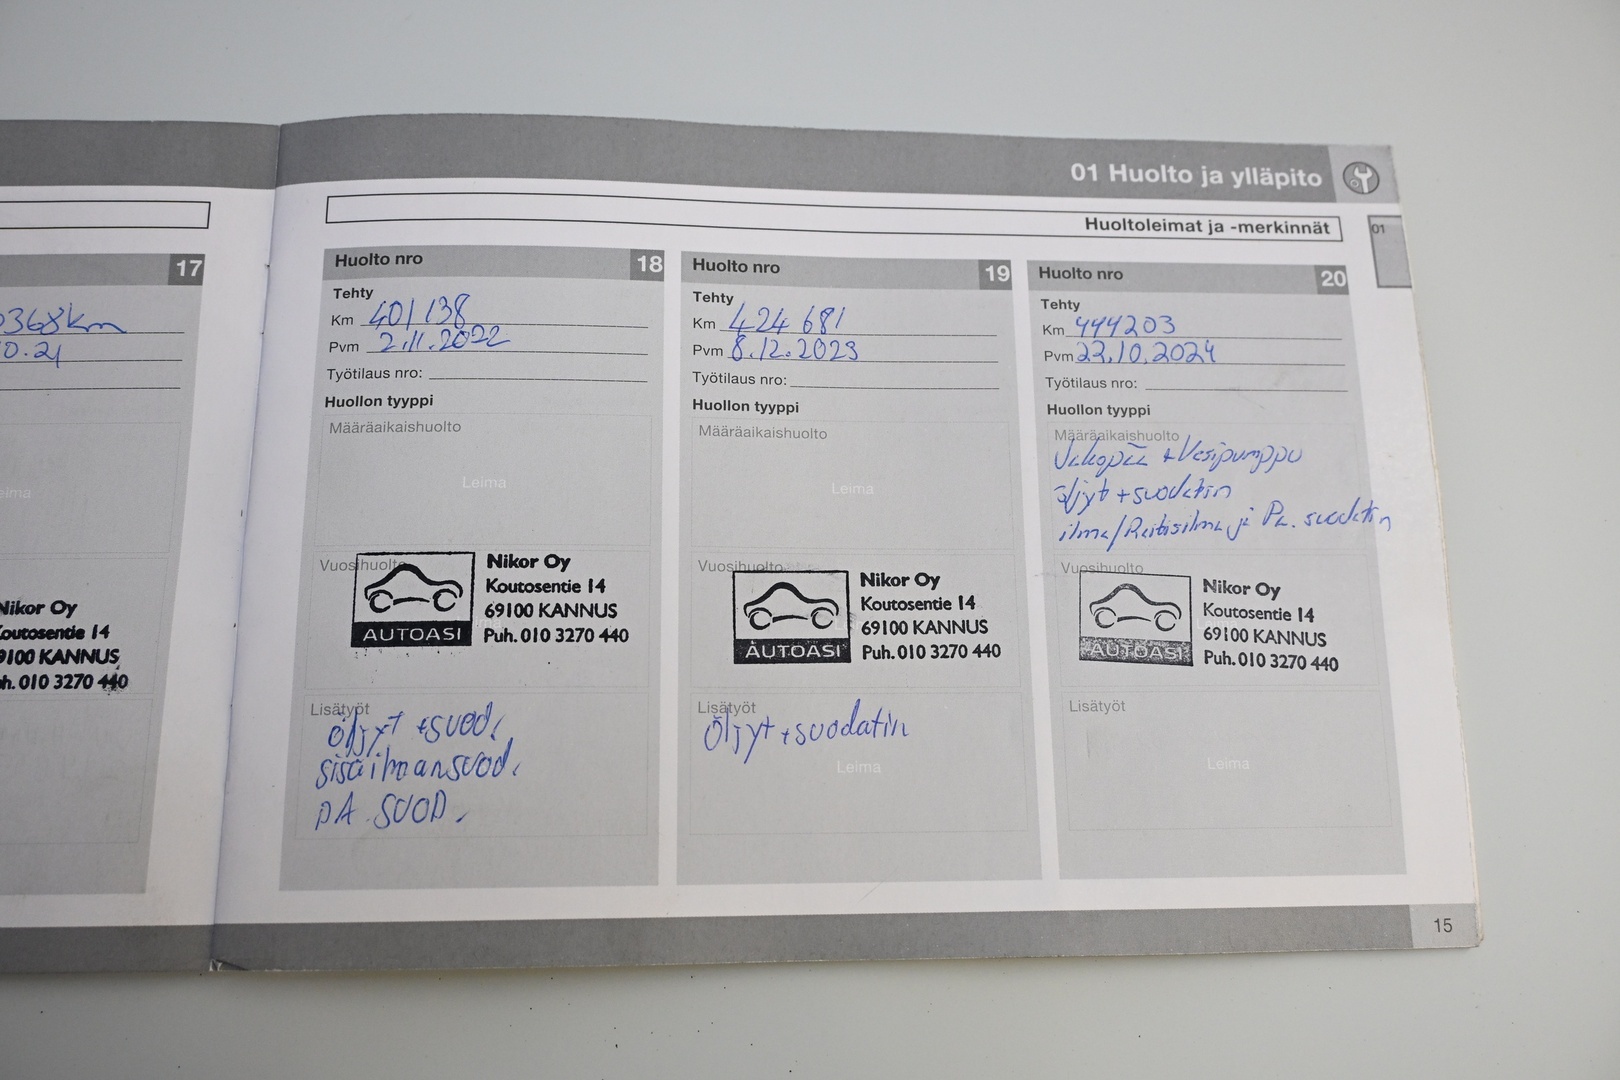 01 Huolto ja ylläpito
01
Huoltoleimat ja -merkinnät
17
368km
0.21
Nikor Oy
Koutosentie 14
9100 KANNUS
h. 010 3270 440
Huolto nro 18
Tehty
Km 401 138
Pvm 2.11.2022
Työtilaus nro:
Huollon tyyppi
Määräaikaishuolto
Leima
Vuosihuolto
AUTOASI
Nikor Oy
Koutosentie 14
69100 KANNUS
Puh. 010 3270 440
Lisätyöt
öljyt +suod.
sisäilmansuod.
PA. SUOD.
Huolto nro 19
Tehty
Km 424 681
Pvm 8.12.2023
Työtilaus nro:
Huollon tyyppi
Määräaikaishuolto
Leima
Vuosihuolto
AUTOASI
Nikor Oy
Koutosentie 14
69100 KANNUS
Puh. 010 3270 440
Lisätyöt
Öljyt +suodatin
Leima
Huolto nro 20
Tehty
Km 444203
Pvm 22.10.2024
Työtilaus nro:
Huollon tyyppi
Määräaikaishuolto
Jakopää +Vesipumppu
öljyt +suodatin
ilma/Raitisilma ja Pa. suodatin
Vuosihuolto
AUTOASI
Nikor Oy
Koutosentie 14
69100 KANNUS
Puh. 010 3270 440
Lisätyöt
Leima
15